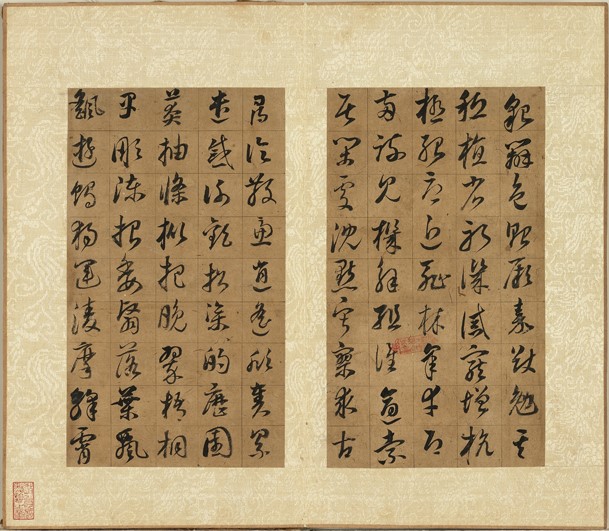 貌辨色貽厥嘉猷勉其
祗植省躬譏誡寵增抗
極殆辱近恥林皋幸即
兩疏見機解組誰逼索
居閒處沈默寂寥求古
尋論散慮逍遙欣奏累
遣慼謝歡招渠的歷園
莽抽條枇杷晚翠梧桐
早凋陳根委翳落葉飄
颻遊鵾獨運凌摩絳霄